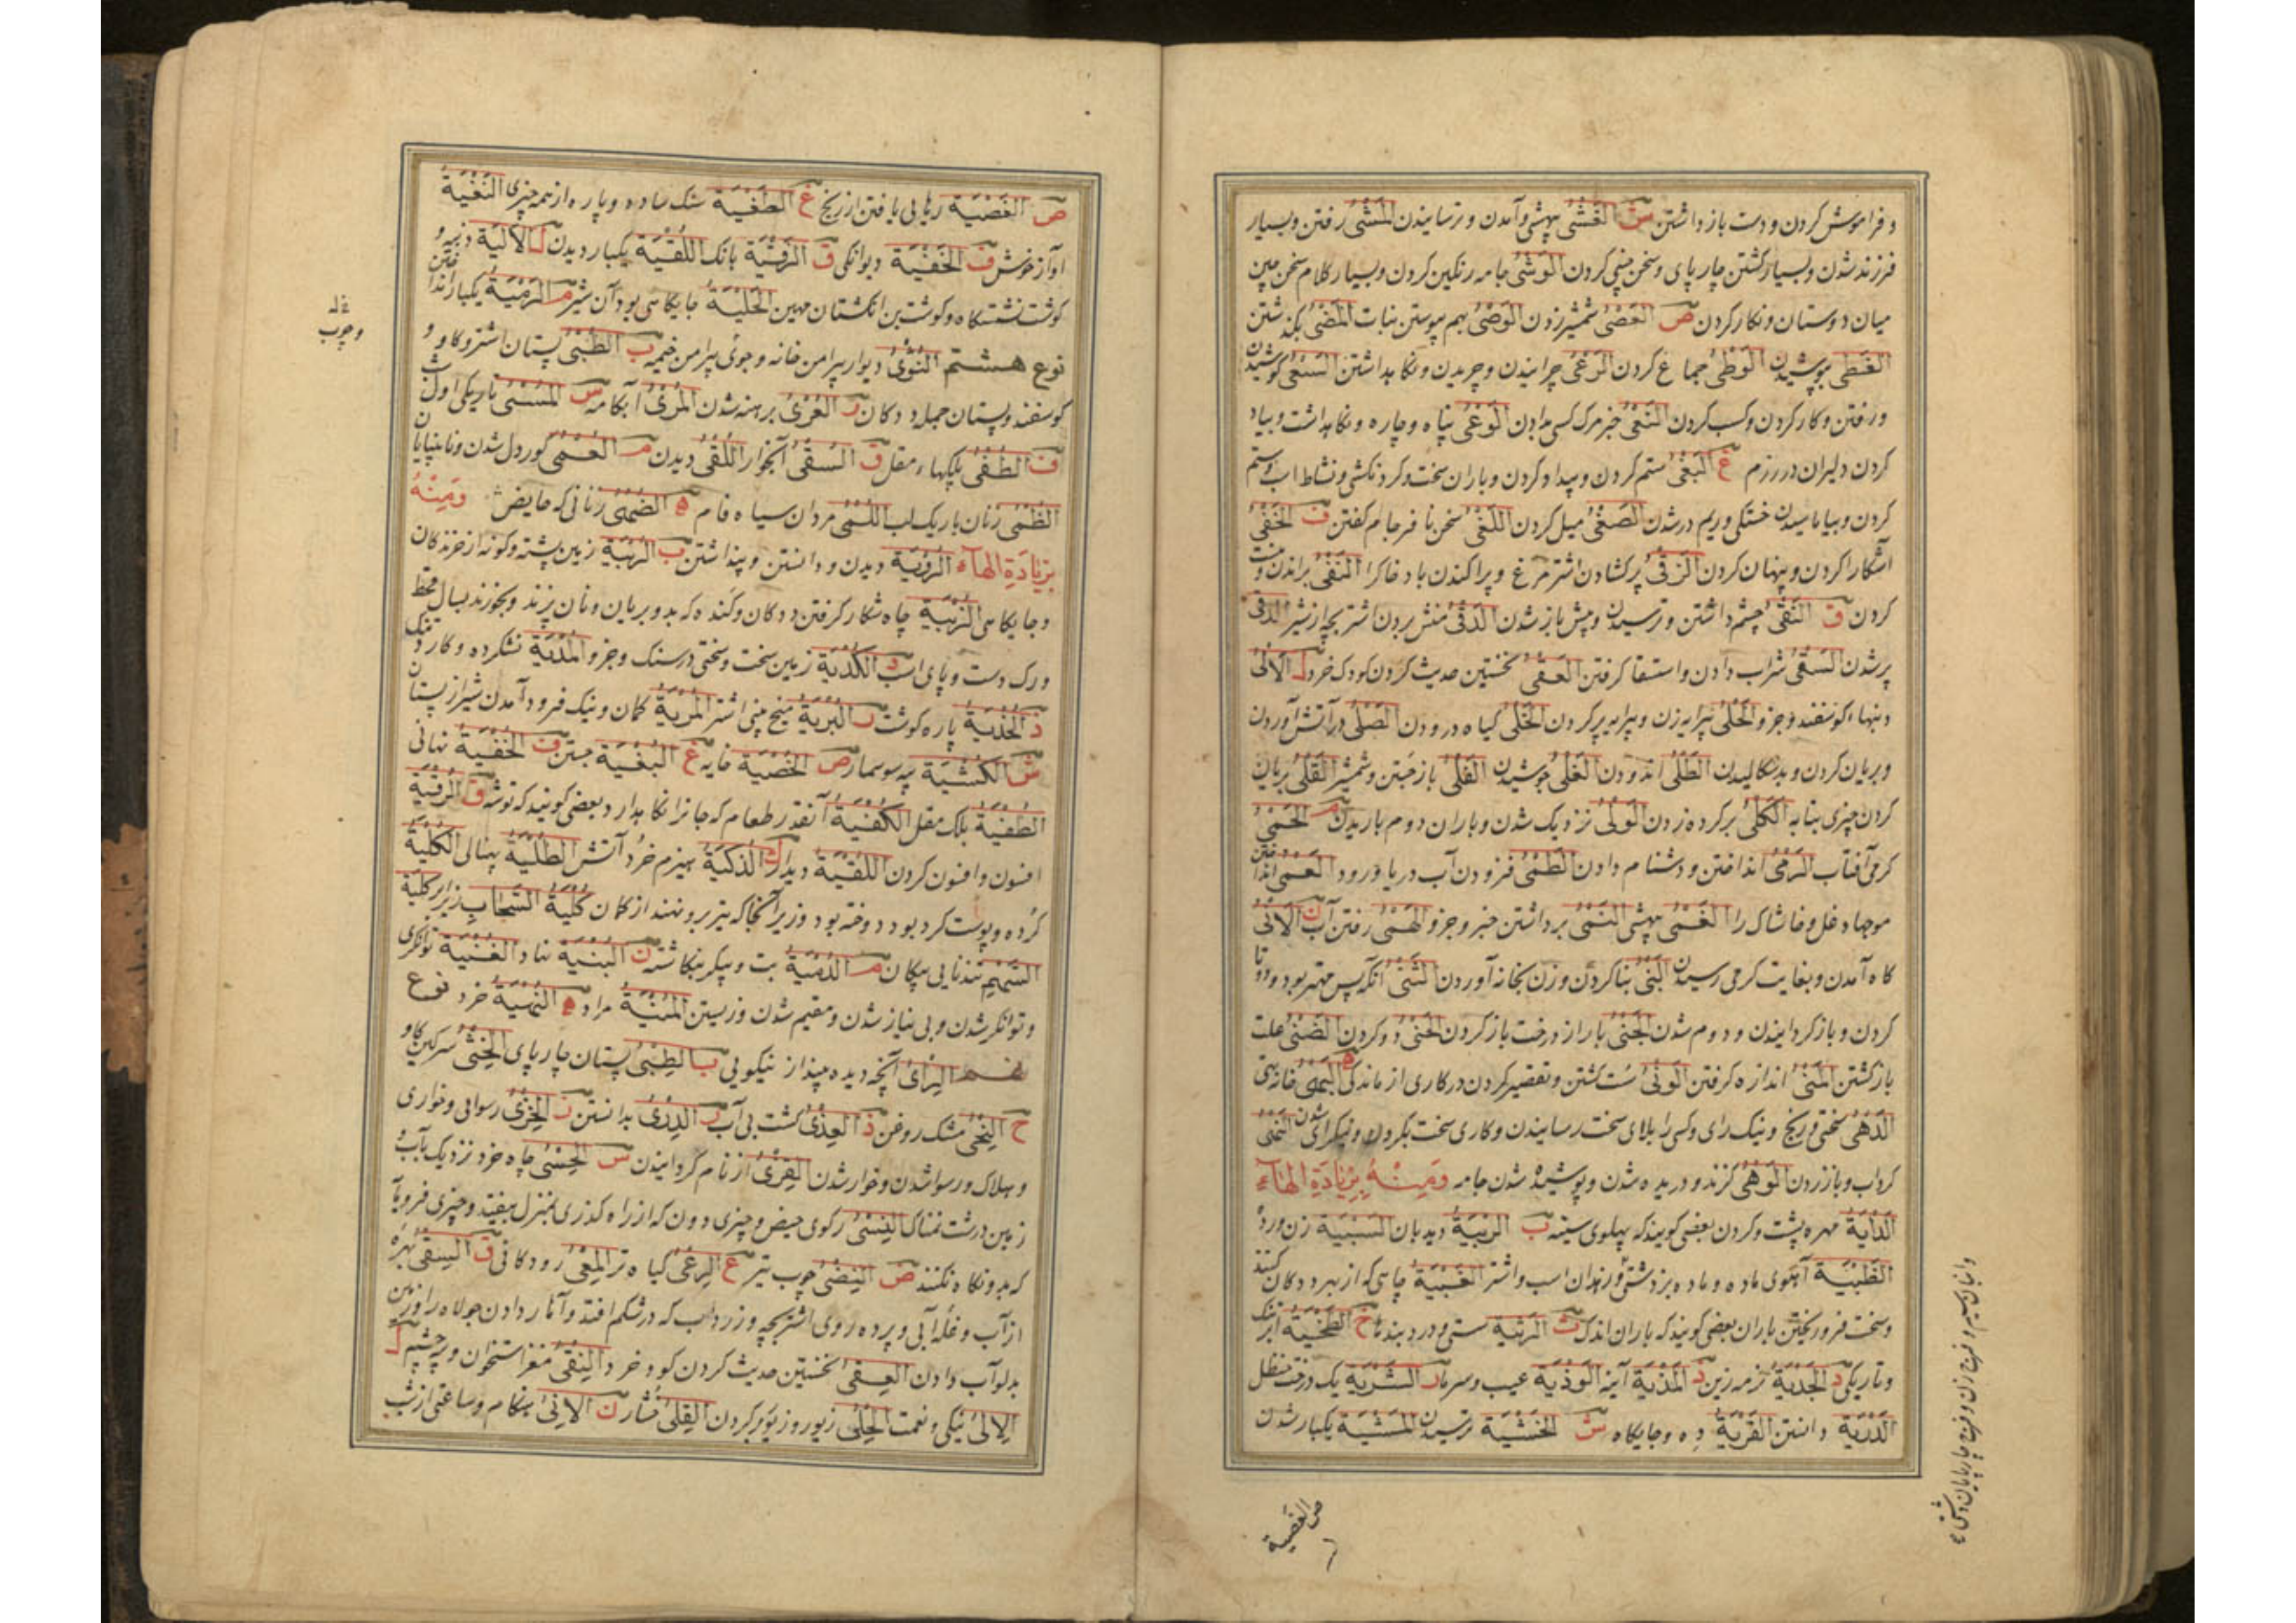 و فراموش کردن و دست باز داشتن ش الغَشْیُ بیهشی و آمدن و ترسانیدن المَشْیُ رفتن و بسیار
فرزند شدن و بسیار گشتن چارپای و سخن چینی کردن الوَشْیُ جامه رنکین کردن و بسیار کلام سخن چین
میان دوستان و نکار کردن ص العَصْیُ شمشیر زدن الوَصْیُ بهم پیوستن نبات المَضْیُ بکذشتن
الغَطْیُ پوشیدن الوَطْیُ جماع کردن الرَعْیُ چرانیدن و چریدن و نکاه داشتن السَعْیُ کوشیدن
و رفتن و کار کردن و کسب کردن النَعْیُ خبر مرک کسی دادن الوَعْیُ پناه و چاره و نکاهداشت و بیاد
کردن دلیران در رزم غ البَغْیُ ستم کردن و بیداد کردن و باران سخت و کردنکشی و نشاط اسب و ستم
کردن و بیاماسیدن خستکی و ریم در شدن الصَغْیُ میل کردن اللَغْیُ سخن نافرجام کفتن ف الخَفْیُ
آشکارا کردن و پنهان کردن الزَفْیُ پر کشادن اشتر مرغ و پراکندن باد خاک را النَفْیُ براندن و نیست
کردن ق النَقْیُ چشم داشتن و ترسیدن و پیش باز شدن الدَقْیُ منش بردن اشتر بچه از شیر الدقی
پر شدن السَقْیُ شراب دادن و استسقا کرفتن العَقْیُ نخستین حدیث کردن کودک خرد ل الأَلْیُ
دنبهاء کوسفند و جز و الحَلْیُ پیرایه زن و پیرایه پر کردن الخَلْیُ کیاه درودن الصَلْیُ در آتش آوردن
و بریان کردن و بدسکالیدن الطَلْیُ اندودن الغَلْیُ جوشیدن الفَلْیُ باز جستن و شمشیر القَلْیُ بریان
کردن چیزی بتابه الکَلْیُ بر کرده زدن الوَلْیُ نزدیک شدن و باران دوم باریدن م الحَمْیُ
کرمی آفتاب الرَمْیُ انداختن و دشنام دادن الطَمْیُ فزودن آب دریا و رود العَمْیُ انداختن
موجها دغل و خاشاک را الغَمْیُ بیهشی النَمْیُ برداشتن خبر و جز و الهَمْیُ رفتن آب ن الأَنْیُ
کاه آمدن و بغایت کرمی رسیدن البَنْیُ بنا کردن و زن بخانه آوردن الثَنْیُ آنکه پس مهتر بود و دو تا
کردن و باز کردانیدن و دوم شدن الجَنْیُ بار از درخت باز کردن الحَنْیُ دو کردن الضَنْیُ علت
باز کشتن المَنْیُ اندازه کرفتن الوَنْیُ سست کشتن و تقصیر کردن در کاری از ماندکی ه البَهْیُ خانه تهی
الدَهْیُ سختی و رنج و نیک رای و کسی را بلای سخت رسانیدن و کاری سخت بکردن و نیکرای شدن النَهْیُ
کرداب و باز زدن الوَهْیُ کزند و دریده شدن و پوشیده شدن جامه وَمِنْهُ بِزِیَادَةِ الهَاءِ
الدَأْیَةُ مهره پشت و کردن بعضی کویند که پهلوی سینه ب الرَبْیَةُ دیدبان السَبْیَةُ زن ورده
الظَبْیَةُ آهوی ماده و ماده بز دشتی و زهدان اسب و اشتر الغَبْیَةُ چاهی که از بهر ددکان کنند
و سخت فرو ریختن باران بعضی کویند که باران اندک ث الرَثْیَةُ سستی و درد بندها خ الطَخْیَةُ ابر تنک
و تاریکی د الجَدْیَةُ نرمه زین ذ المَذْیَةُ آینه الوَذْیَةُ عیب و سرما ر الشَرْیَةُ یک درخت حنظل
الدَرْیَةُ دانستن القَرْیَةُ ده و جایکاه ش الخَشْیَةُ ترسیدن المَشْیَةُ یکبار شدن
ص الغصیة
ص الفَصْیَةُ رهایی یافتن از رنج غ الطَغْیَةُ سنک ساده و پاره از همه چیزی النَغْیَةُ
آواز خوش ف الخَفْیَةُ دیوانکی ق الزَقْیَةُ بانک اللَقْیَةُ یکبار دیدن ل الأَلْیَةُ دنبه و
کوشت نشستکاه و کوشت بن انکشتان مهین الخَلْیَةُ جایکاهی بود آن شیر م الرَمْیَةُ یکبار انداختن
نوع هشتم النُؤْیُ دیوار پیرامن خانه و جوی پیرامن خیمه ب الطُبْیُ پستان اشتر و کاو و
کوسفند و پستان جمله ددکان ر العُرْیُ برهنه شدن المُرْیُ آبکامه س المُسْیُ تاریکی اول شب
ف الطُفْیُ بلکهاء مقل ق السُقْیُ آبخوار اللُقْیُ دیدن م العُمْیُ کور دل شدن و نابینایان
الظُمْیُ زنان باریک لب اللُمْیُ مردان سیاه فام ه الضُهْیُ زنانی که حایض وَمِنْهُ
بِزِیَادَةِ الهَاءِ الرُؤْیَةُ دیدن و دانستن و پنداشتن ب الرُبْیَةُ زمین پشته و کونه از خزندکان
و جایکاهی الزُبْیَةُ چاه شکار کرفتن ددکان و کنده که بدو بریان و نان پزند و بخورند بسال قحط
و رک دست و پای اسب د الکُدْیَةُ زمین سخت و سختی در سنک و جز و المُدْیَةُ نشکرده و کارد تنک
ذ الحُذْیَةُ پاره کوشت ر البُرْیَةُ میخ بینی اشتر المُرْیَةُ کمان و نیک فرود آمدن شیر از پستان
ش الکُشْیَةُ پیه سوسمار ص الخُصْیَةُ خایه غ البُغْیَةُ جستن ف الخُفْیَةُ نهانی
الطُفْیَةُ بلک مقل الکُفْیَةُ آنقدر طعام که جانرا نکاهدارد و بعضی کویند که توشه ق الرُقْیَةُ
افسون و افسون کردن اللُقْیَةُ دیدار ک الذُکْیَةُ هیزم خرد آتش الطُلْیَةُ پهنالی الکُلْیَةُ
کرده و پوست کرد بود دوخته بود و زیر آنجا که تیر برو نهند از کمان کُلْیَةُ السَحَابِ زیر ابر کلیة
السَهْمِ تندنایی پیکان م الدُمْیَةُ بت و پیکر بنکاشته ن البُنْیَةُ بنا و الغُنْیَةُ توانکری
و توانکر شدن و بی نیاز شدن و مقیم شدن و زیستن المُنْیَةُ مراد ه النُهْیَةُ خرد نوع
نهم الرِأْیُ آنچه دیده بیند از نیکویی ب الطِبْیُ پستان چارپای الخِثْیُ سرکین کاو
ح النِحْیُ مشک روغن ذ العِذْیُ کشت بی آب ر الدِرْیُ بدانستن ز الخِزْیُ رسوایی و خواری
و هلاک و رسوا شدن و خوار شدن الفِزْیُ از نام کردانیدن س الحِسْیُ چاه خرد نزدیک بآب و
زمین درشت نمناک النِسْیُ رکوی حیض و چیزی دون که از راه کذری بمنزل بیفتد و چیزی فرومایه
که بدو نکاه نکنند ض النِضْیُ چوب تیر ع الرِعْیُ کیاه تر المِعْیُ رودکانی ق السِقْیُ بهره
از آب و غله آبی و پرده روی اشتر بچه و زرداب که در شکم افتد و آثار دادن جولاه را و زمین
بدلو آب دادن العِقْیُ نخستین حدیث کردن کودک خرد النِقْیُ مغز استخوان و پیه چشم ل
الإِلْیُ نیکی و نعمت الحِلْیُ زیور و زیور کردن القِلْیُ شخار ن الإِنْیُ هنکام و ساعتی از شب